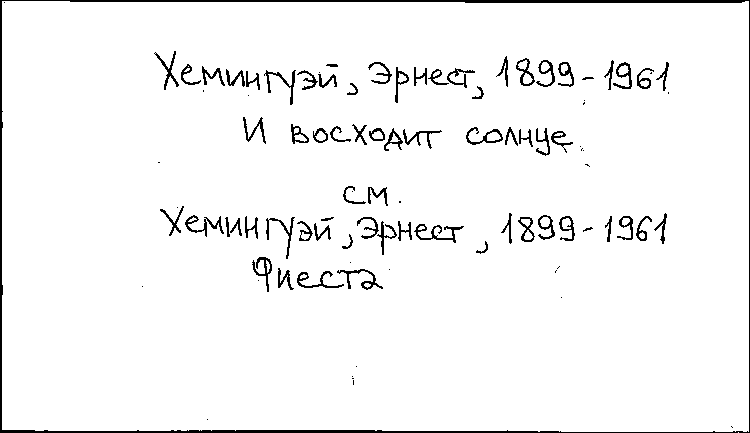 Хемингуэй, Эрнест, 1899-1961
И восходит солнце.
см.
Хемингуэй, Эрнест, 1899-1961
Фиеста